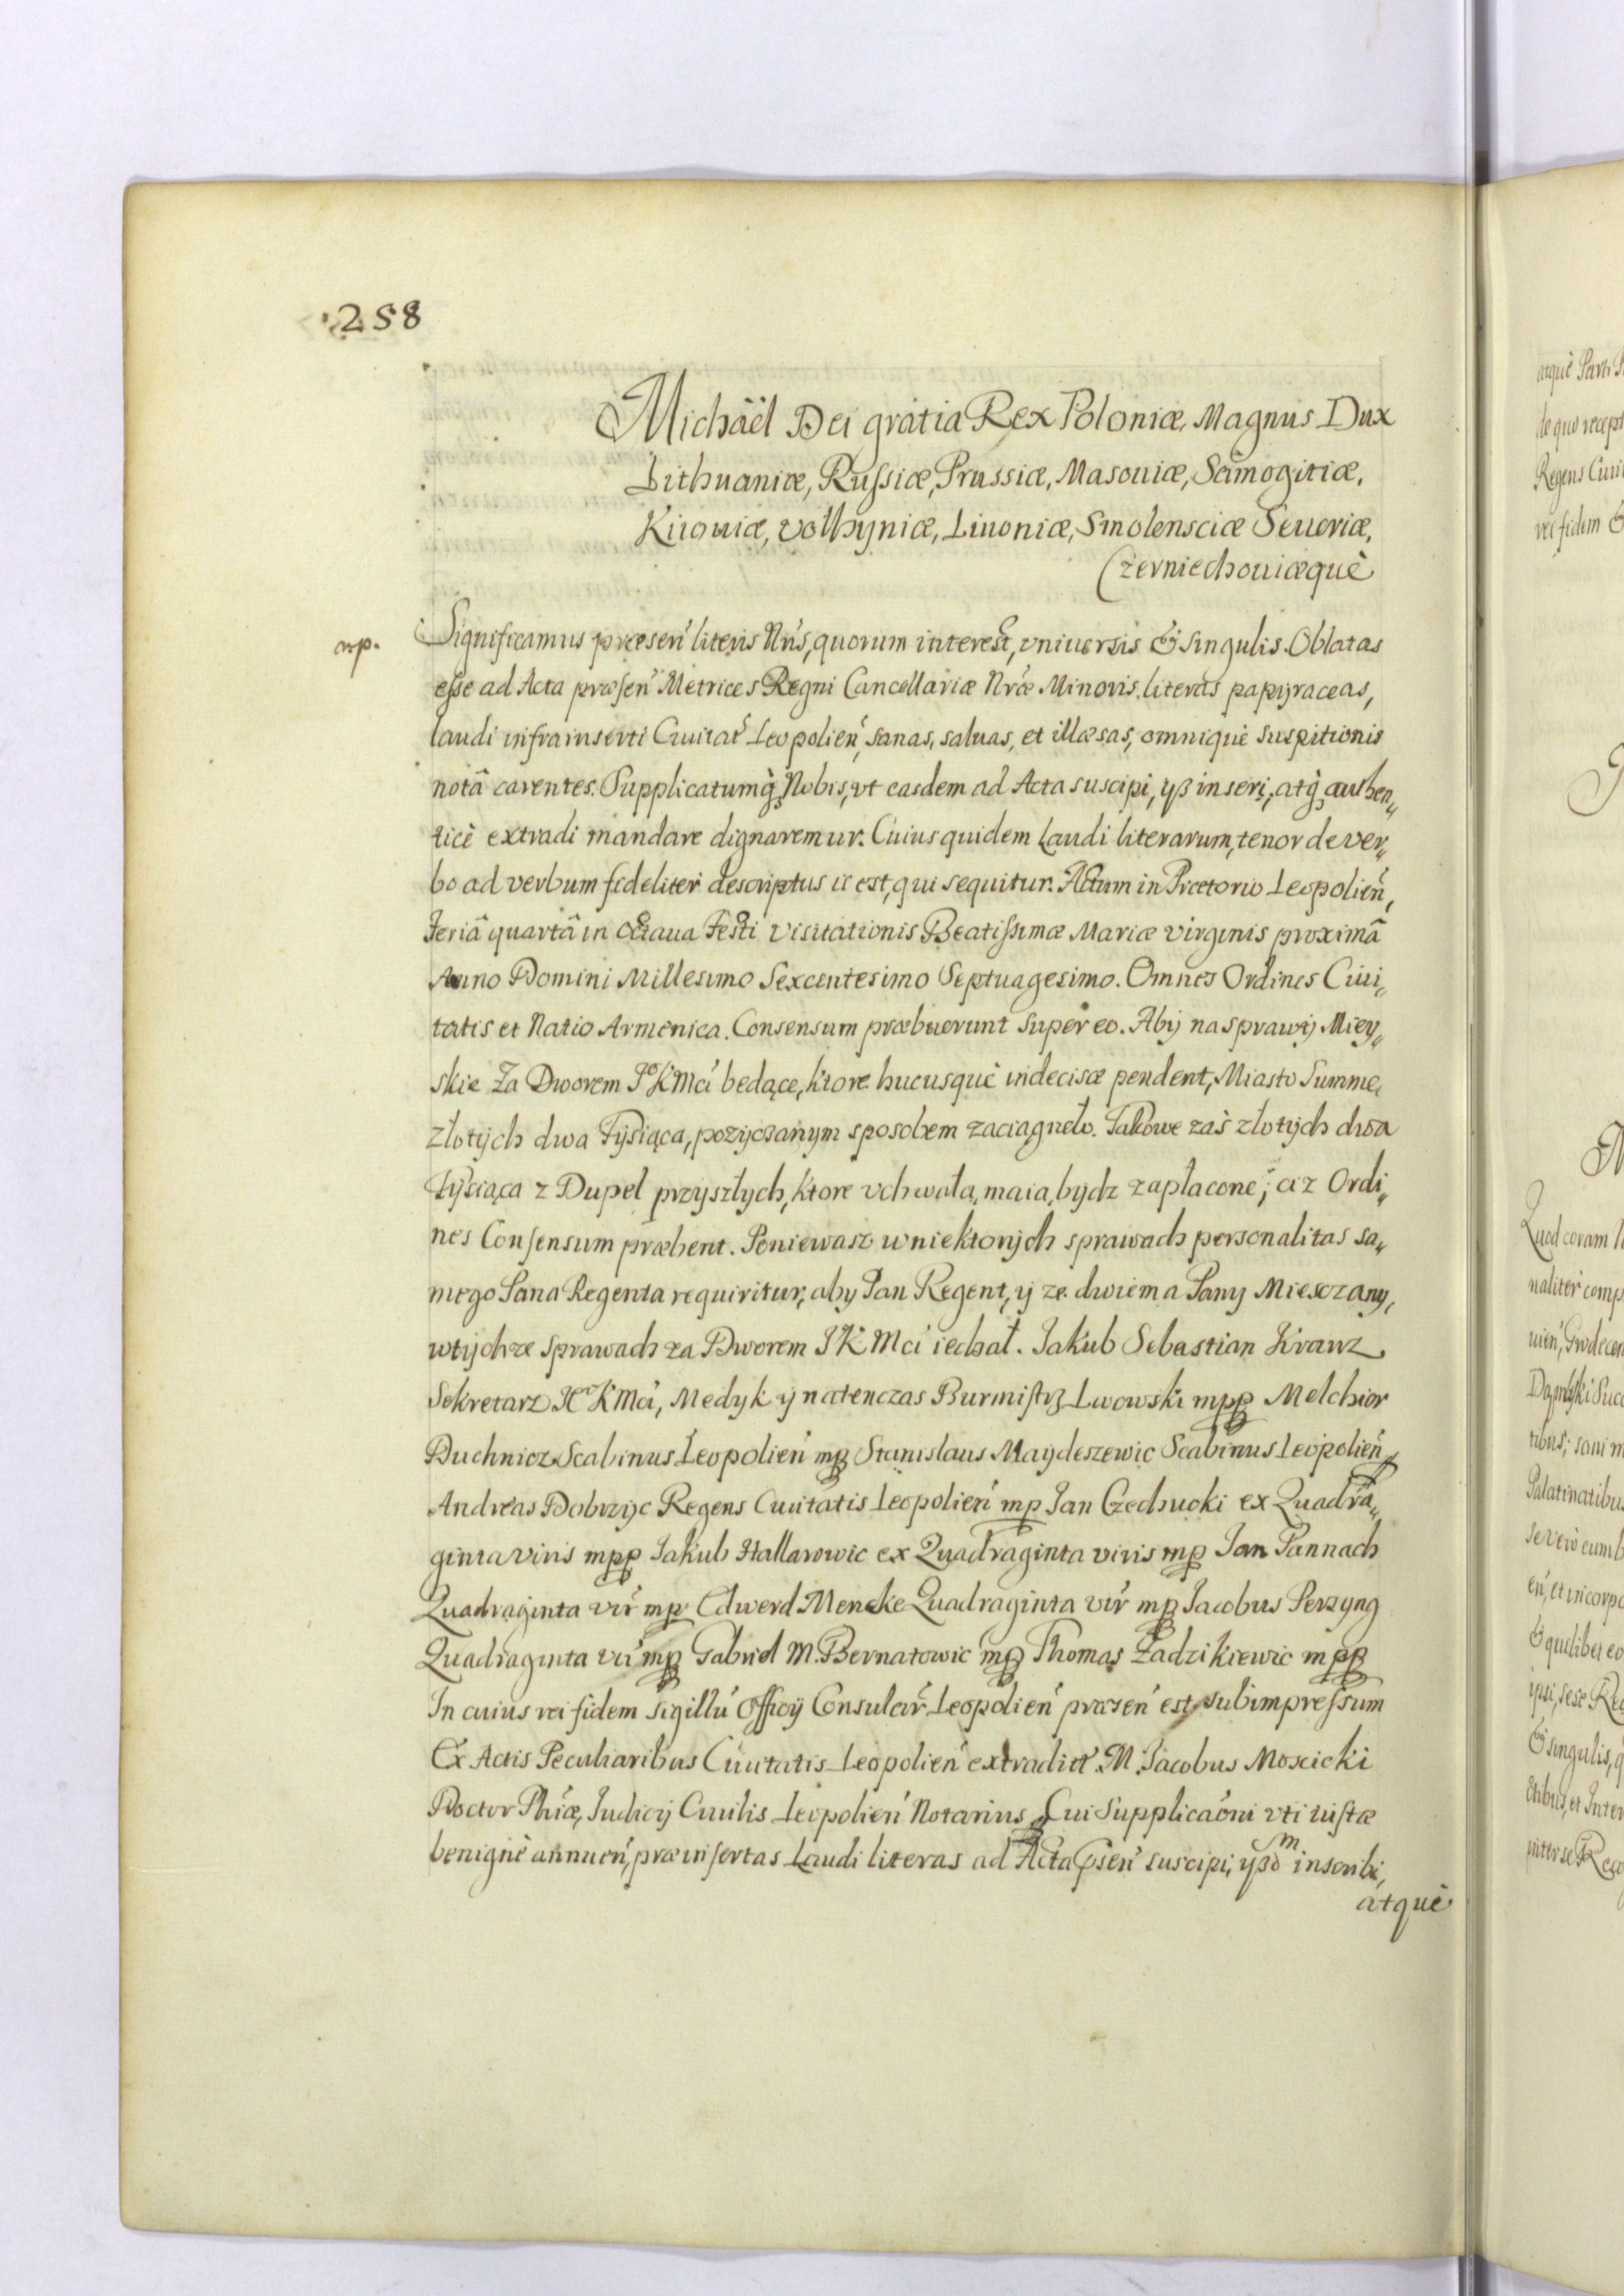 258
Michäel Dei gratia Rex Poloniæ, Magnus Dux
Lithuaniæ, Russiæ, Prussiæ, Masouiæ, Samogitiæ,
Kijouiæ, Volhyniæ, Liuoniæ, Smolensciæ Seueriæ,
Czerniechouiæquè
Significamus præsen̄ literis Nr̄is, quorum interest, vniuersis & singulis. Oblatas
esse ad Acta præsen̄ Metrices Regni Cancellariæ Nr̄æ Minoris, literas papyraceas,
laudi infrainserti Ciuitat̄ Leopolien̄, sanas, saluas, et illæsas, omniquè suspitionis
notâ carentes. Supplicatumq̀ Nobis, vt easdem ad Acta suscipi, ijß inseri, atq̀ authen„
ticè extradi mandare dignaremur. Cuius quidem Laudi literarum, tenor de ver„
bo ad verbum fideliter descriptus is est, qui sequitur. Actum in Prætorio Leopolien̄,
Feriâ quartâ in octaua Festi Visitationis Beatissimæ Mariæ virginis proximâ
Anno Domini Millesimo Sexcentesimo Septuagesimo. Omnes Ordines Ciui„
tatis et Natio Armenica. Consensum præbuerunt super eo. Aby na sprawy Miey„
skie za Dworem Jº K Mci bedące, ktore hucusquè indecisæ pendent, Miasto Summe
złotych dwa Tysiąca, pozyczanym sposobem zaciągneło. Takowe zaś złotych dwa
tysiąca z Dupel przyszłych, ktore vchwałą, maią bydz zapłacone; ciz Ordi„
nes Consensum præbent. Poniewasz w niektorych sprawach personalitas sa„
mego Pana Regenta requiritur, aby Pan Regent, y ze dwiema Pany Miesczany,
wtychze sprawach za Dworem J K Mci iechał. Jakub Sebastian Kranz
Sekretarz K Mci, Medyk y natenczas Burmistrz Lwowski mpp Melchior
Duchnicz Scabinus Leopolien̄ mp Stanislaus Maydeszewic Scabinus Leopolien̄
Andreas Dobrzyc Regens Ciuitatis Leopolien̄ mp Jan Czechucki ex Quadra„
ginta viris mpp Jakub Hallarowic ex Quadraginta viris mp Jan Pannach
Quadraginta vir̄ mp Edwerd Mencke Quadraginta vir̄ mp Jacobus Perzyng
Quadraginta vir̄ mp Gabriel M. Bernatowic mp Thomas Zadzikiewic mpp
In cuius rei fidem sigillū Officij Consular̄ Leopolien̄ præsen̄ est subimpressum
Ex Actis Peculiaribus Ciuitatis Leopolien̄ extradit̄. M. Jacobus Moscicki
Doctor Phīæ, Judicij Ciuilis Leopolien̄ Notarius Cui Supplicaōni vti iustæ
benignè annuen̄, præinsertas Laudi literas ad Acta p̄sen̄ suscipi, inscribi,
atquè